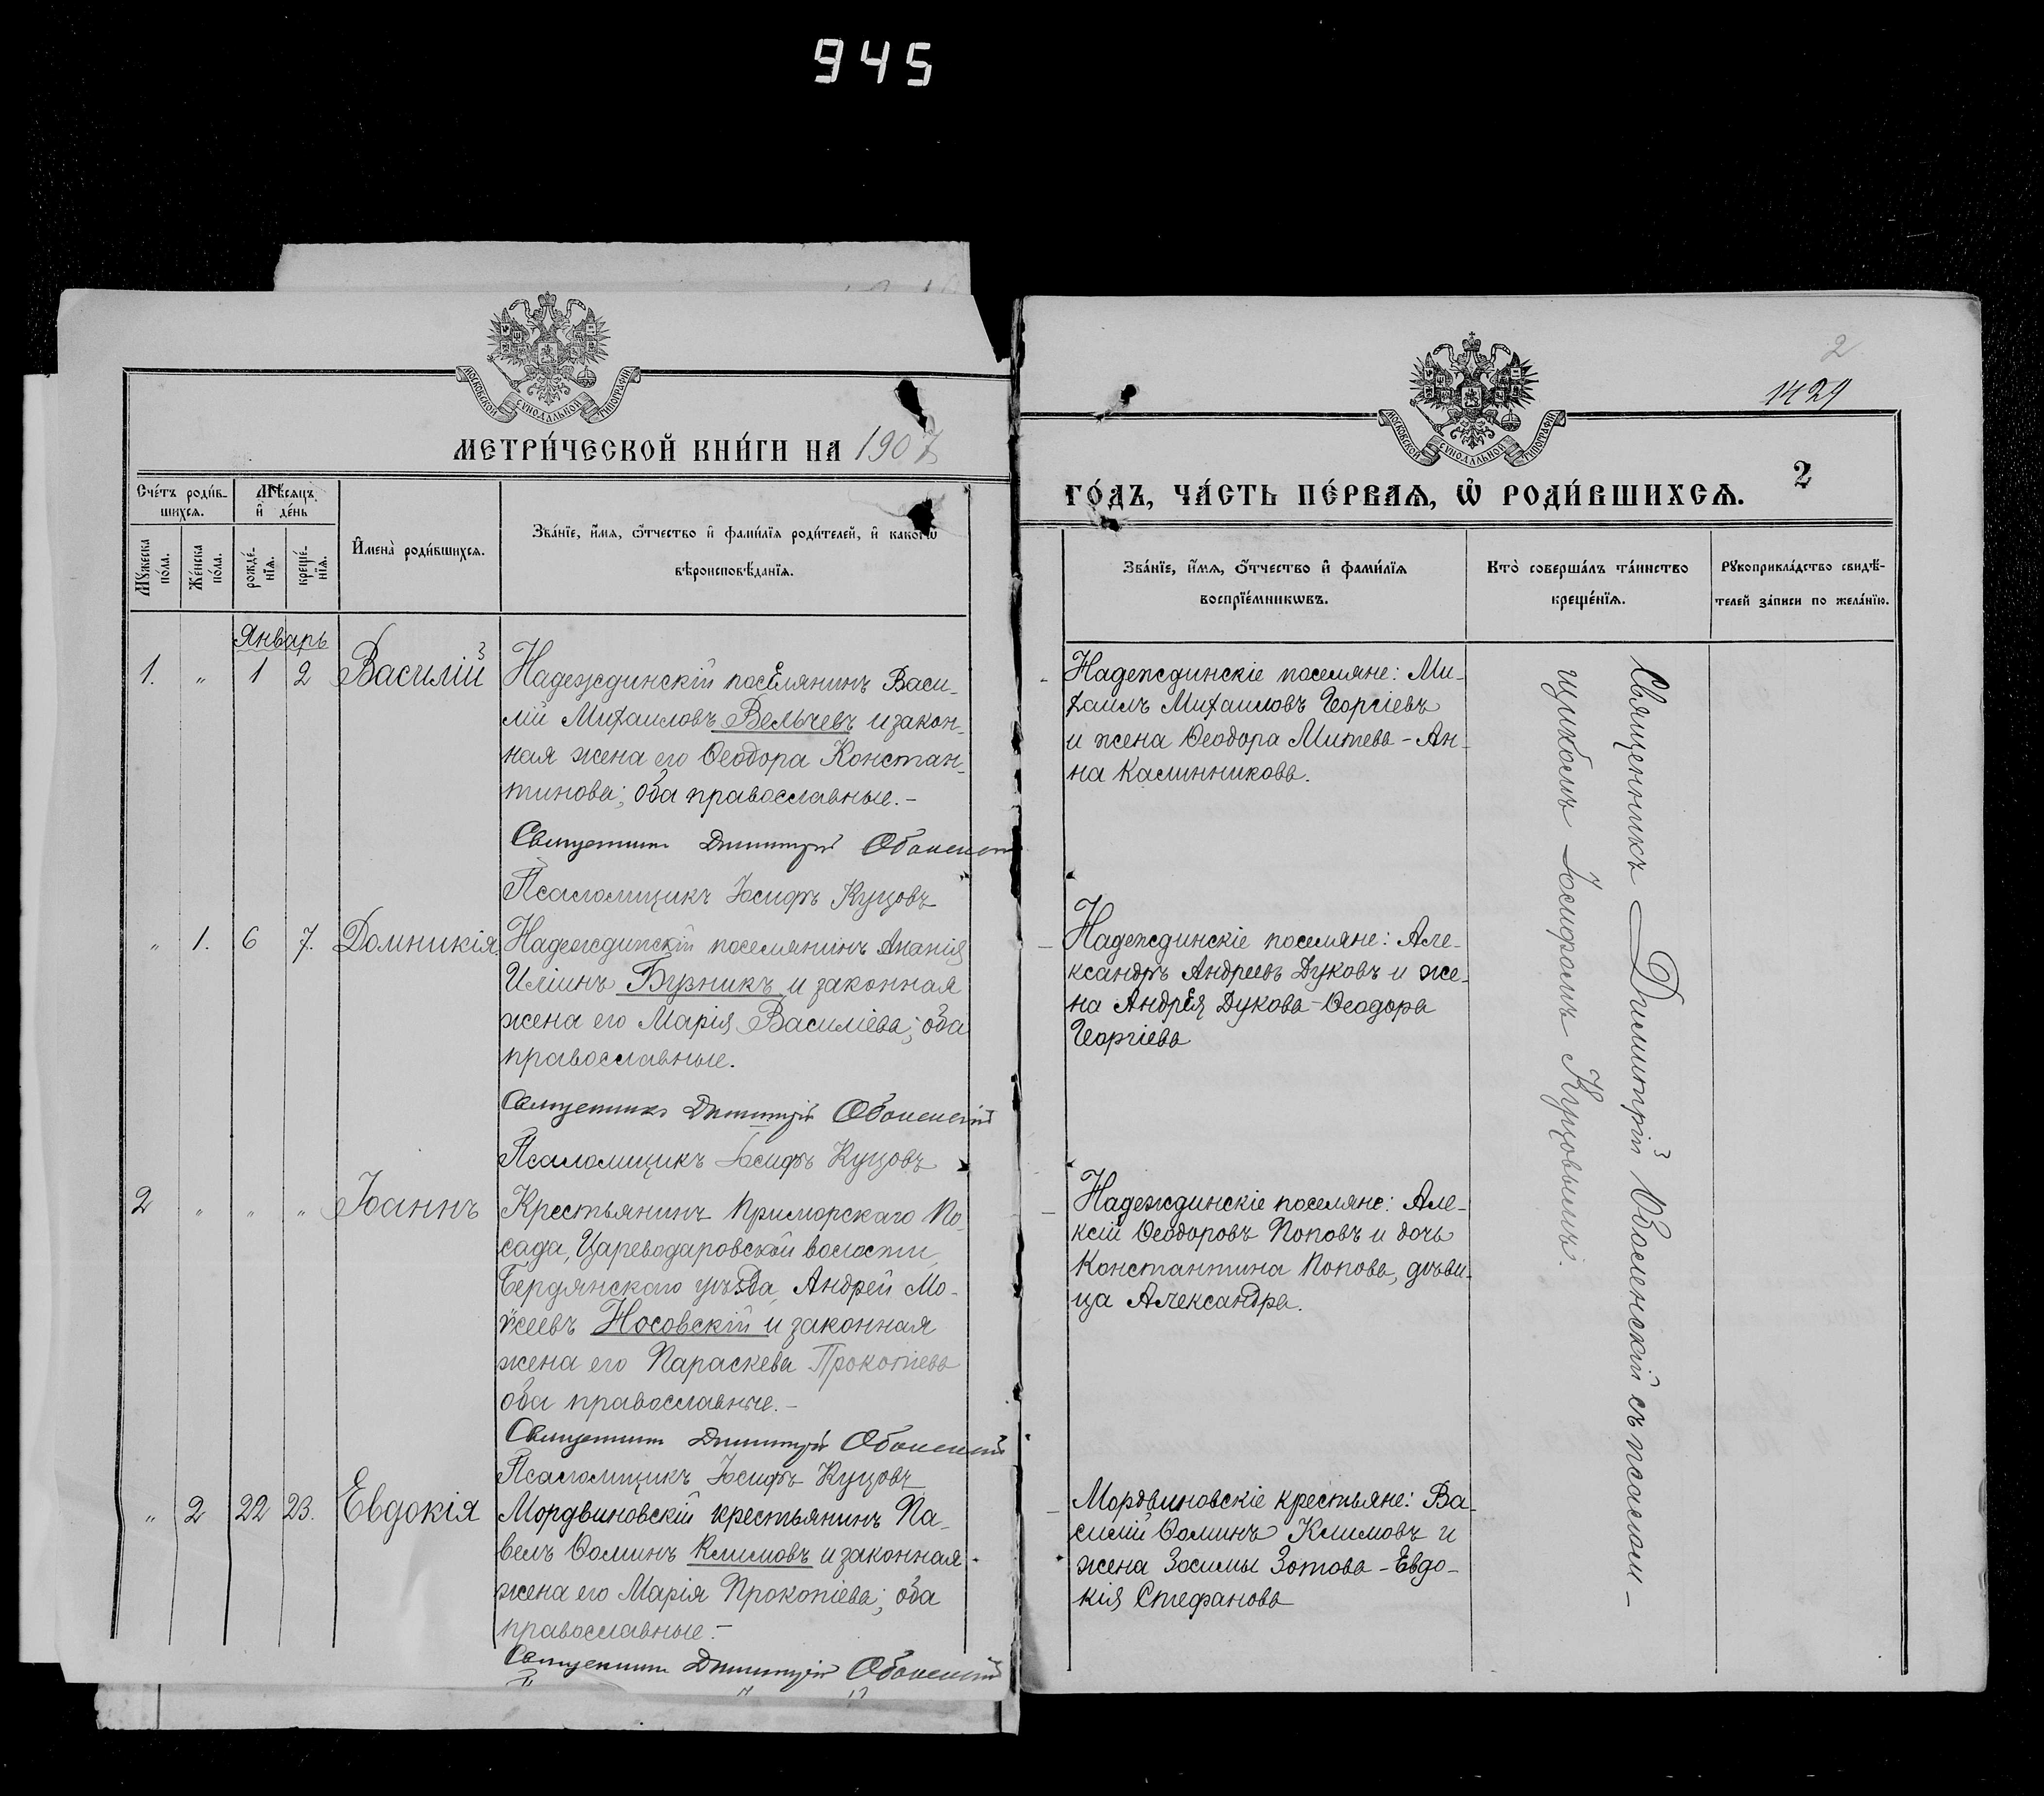 945
МОСКОВСКОЙ СУНОДАЛЬНОЙ ТИПОГРАФІИ
МЕТРИ́ЧЕСКОЙ КНИ́ГИ НА 1907
Сче́тъ роди́в-
шихсѧ.
Мѣ́сѧцъ
и҆ де́нь
Мꙋ́жеска
по́ла.
Же́нска
по́ла.
рожде́-
нїѧ.
креще́-
нїѧ.
И҆мена̀ роди́вшихсѧ.
Зва́нїе, и҆́мѧ, ѻ҆́тчество и҆ фами́лїѧ роди́телей, и҆ како́гѡ
вѣроисповѣ́данїѧ.
Январь
1. „ 1 2 Василій
Надеждинскій поселянинъ Васи-
лій Михаиловъ Вельчевъ и закон-
ная жена его Ѳеодора Констан-
тинова; оба православные.-
Священникъ Димитрій
Псаломщикъ Іосифъ Куцовъ
„ 1. 6 7. Домникія.
Надеждинскій поселянинъ Ананія
Иліинъ Бурникъ и законная
жена его Марія Василіева; оба
православные.
Священникъ Димитрій
Псаломщикъ Іосифъ Куцовъ
2 „ „ „ Іоаннъ
Крестьянинъ Приморскаго По-
сада, Цареводаровской волости,
Бердянскаго уѣзда, Андрей Мо-
ѵсеевъ Носовскій и законная
жена его Параскева Прокопіева
оба православные.-
Священникъ Димитрій
Псаломщикъ Іосифъ Куцовъ
„ 2 22 23. Евдокія
Мордвиновскій крестьянинъ Па-
велъ Ѳоминъ Климовъ и законная
жена его Марія Прокопіева; оба
православные.-
Священникъ Димитрій
2
1429
МОСКОВСКОЙ СУНОДАЛЬНОЙ ТИПОГРАФІИ
ГО́ДЪ, ЧА́СТЬ ПЕ́РВАѦ, Ѡ҆ РОДИ́ВШИХСѦ. 2
Зва́нїе, и҆́мѧ, ѻ҆́тчество и҆ фами́лїѧ
воспрїе́мникѡвъ.
Кто̀ соверша́лъ та́инство
креще́нїѧ.
Рꙋкоприкла́дство свидѣ́-
телей за́писи по жела́нїю.
Надеждинскіе поселяне: Ми-
хаилъ Михаиловъ Георгіевъ
и жена Ѳеодора Митева - Ан-
на Калинникова.
Надеждинскіе поселяне: Але-
ксандръ Андреевъ Дуковъ и же-
на Андрея Дукова - Ѳеодора
Георгіева
Надеждинскіе поселяне: Але-
ксій Ѳеодоровъ Поповъ и дочь
Константина Попова, дѣви-
ца Александра.
Мордвиновскіе крестьяне: Ва-
силій Ѳоминъ Климовъ и
жена Зосимы Зотова - Евдо-
кія Стефанова
Священникъ Димитрій съ псалом-
щикомъ Іосифомъ Куцовымъ.